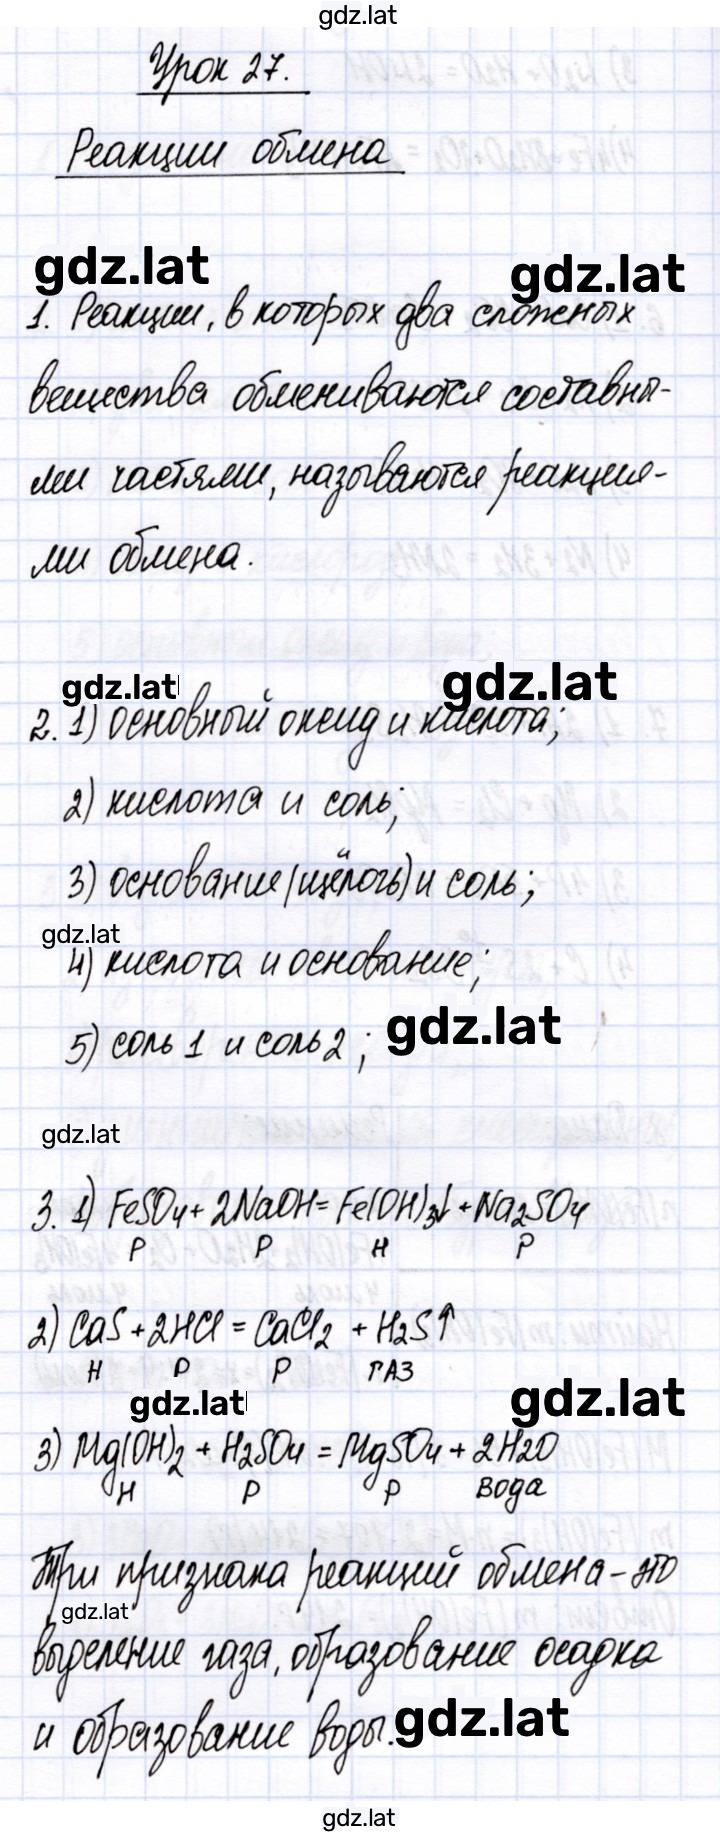 gdz.lat
Урок 27.
Реакции обмена
gdz.lat gdz.lat
1. Реакции, в которых два сложных
вещества обмениваются составны-
ми частями, называются реакция-
ми обмена.
gdz.lat gdz.lat
2. 1) основный оксид и кислота;
2) кислота и соль;
3) основание (щёлочь) и соль;
gdz.lat
4) кислота и основание;
5) соль 1 и соль 2; gdz.lat
gdz.lat
3. 1) FeSO₄ + 2NaOH = Fe(OH)₃↓ + Na₂SO₄
Р Р Н Р
2) CaS + 2HCl = CaCl₂ + H₂S↑
Н Р Р газ
gdz.lat gdz.lat
3) Mg(OH)₂ + H₂SO₄ = MgSO₄ + 2H₂O
Н Р Р вода
Три признака реакций обмена - это
gdz.lat
выделение газа, образование осадка
и образование воды. gdz.lat
gdz.lat